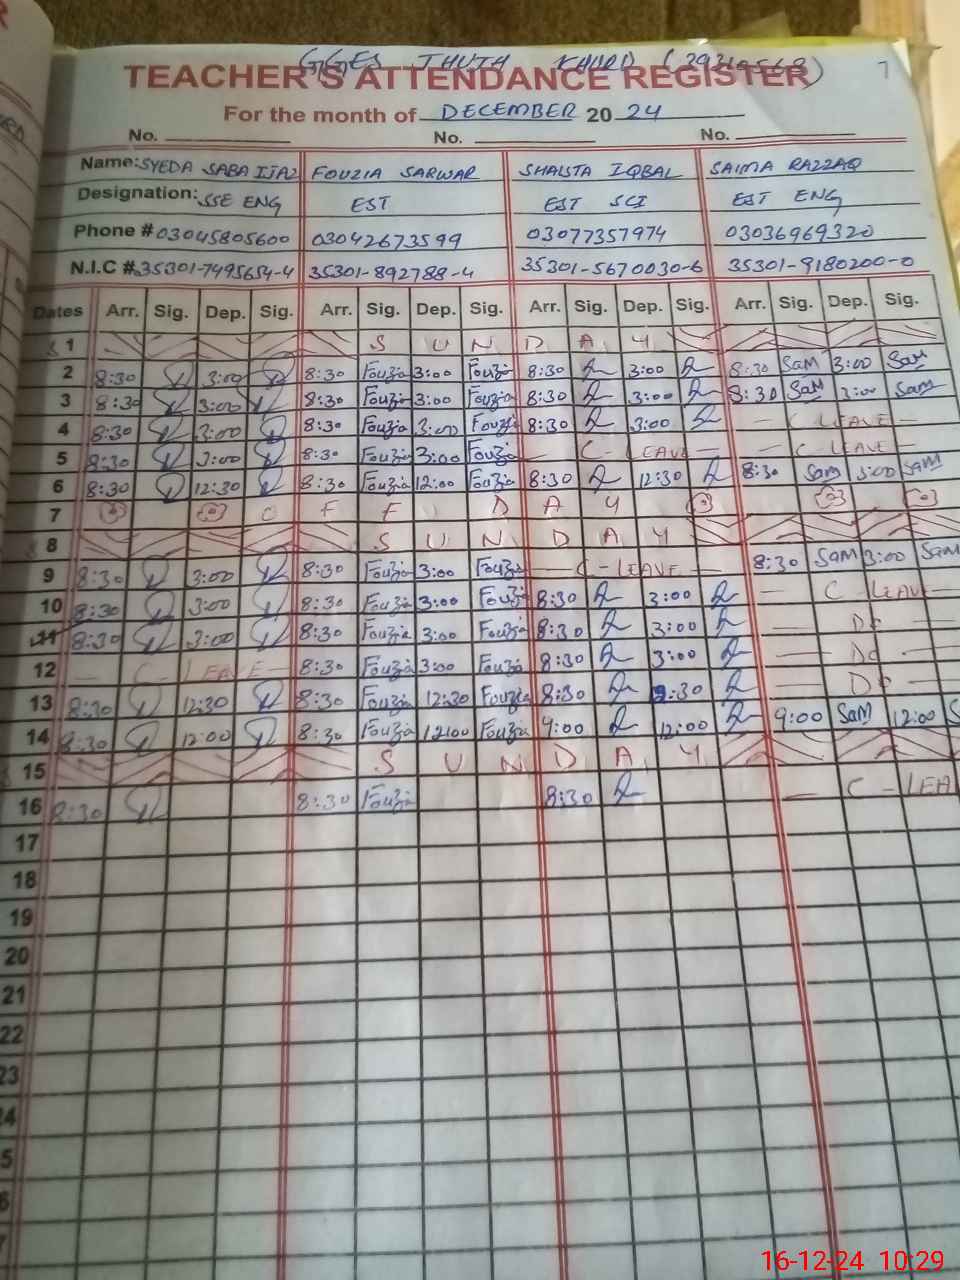 GGES THUTH KHURD 7
TEACHER'S ATTENDANCE REGISTER
For the month of DECEMBER 20 24
No. No. No.
Name: SYEDA SABA IJAZ FOUZIA SARWAR SHAISTA IQBAL SAIMA RAZZAQ
Designation: SSE ENG EST EST SCI EST ENG
Phone # 03045805600 03042673599 03077357974 03036969320
N.I.C #.35301-7495654-4 35301-892788-4 35301-5670030-6 35301-9180200-0
Dates Arr. Sig. Dep. Sig. Arr. Sig. Dep. Sig. Arr. Sig. Dep. Sig. Arr. Sig. Dep. Sig.
1 S U N D A Y
2 8:30 3:00 8:30 Fouzia 3:00 Fouzia 8:30 3:00 8:30 Sam 3:00 Sam
3 8:30 3:00 8:30 Fouzia 3:00 Fouzia 8:30 3:00 8:30 Sam 3:00 Sam
4 8:30 3:00 8:30 Fouzia 3:00 Fouzia 8:30 3:00 — C LEAVE —
5 8:30 3:00 8:30 Fouzia 3:00 Fouzia — C- LEAVE — — C LEAVE —
6 8:30 12:30 8:30 Fouzia 12:00 Fouzia 8:30 12:30 8:30 Sam 3:00 Sam
7 O F F D A Y
8 S U N D A Y
9 8:30 3:00 8:30 Fouzia 3:00 Fouzia — C-LEAVE — 8:30 Sam 3:00 Sam
10 8:30 3:00 8:30 Fouzia 3:00 Fouzia 8:30 3:00 — C -LEAVE—
11 8:30 3:00 8:30 Fouzia 3:00 Fouzia 8:30 3:00 — Do —
12 — C LEAVE — 8:30 Fouzia 3:00 Fouzia 8:30 3:00 — Do —
13 8:30 12:30 8:30 Fouzia 12:30 Fouzia 8:30 :30 — Do —
14 8:30 12:00 8:30 Fouzia 12:00 Fouzia 9:00 12:00 9:00 Sam 12:00 S
15 S U N D A Y
16 8:30 8:30 Fouzia 8:30 — C - LEA
17
18
19
20
21
22
23
24
5
6
7
16-12-24 10:29